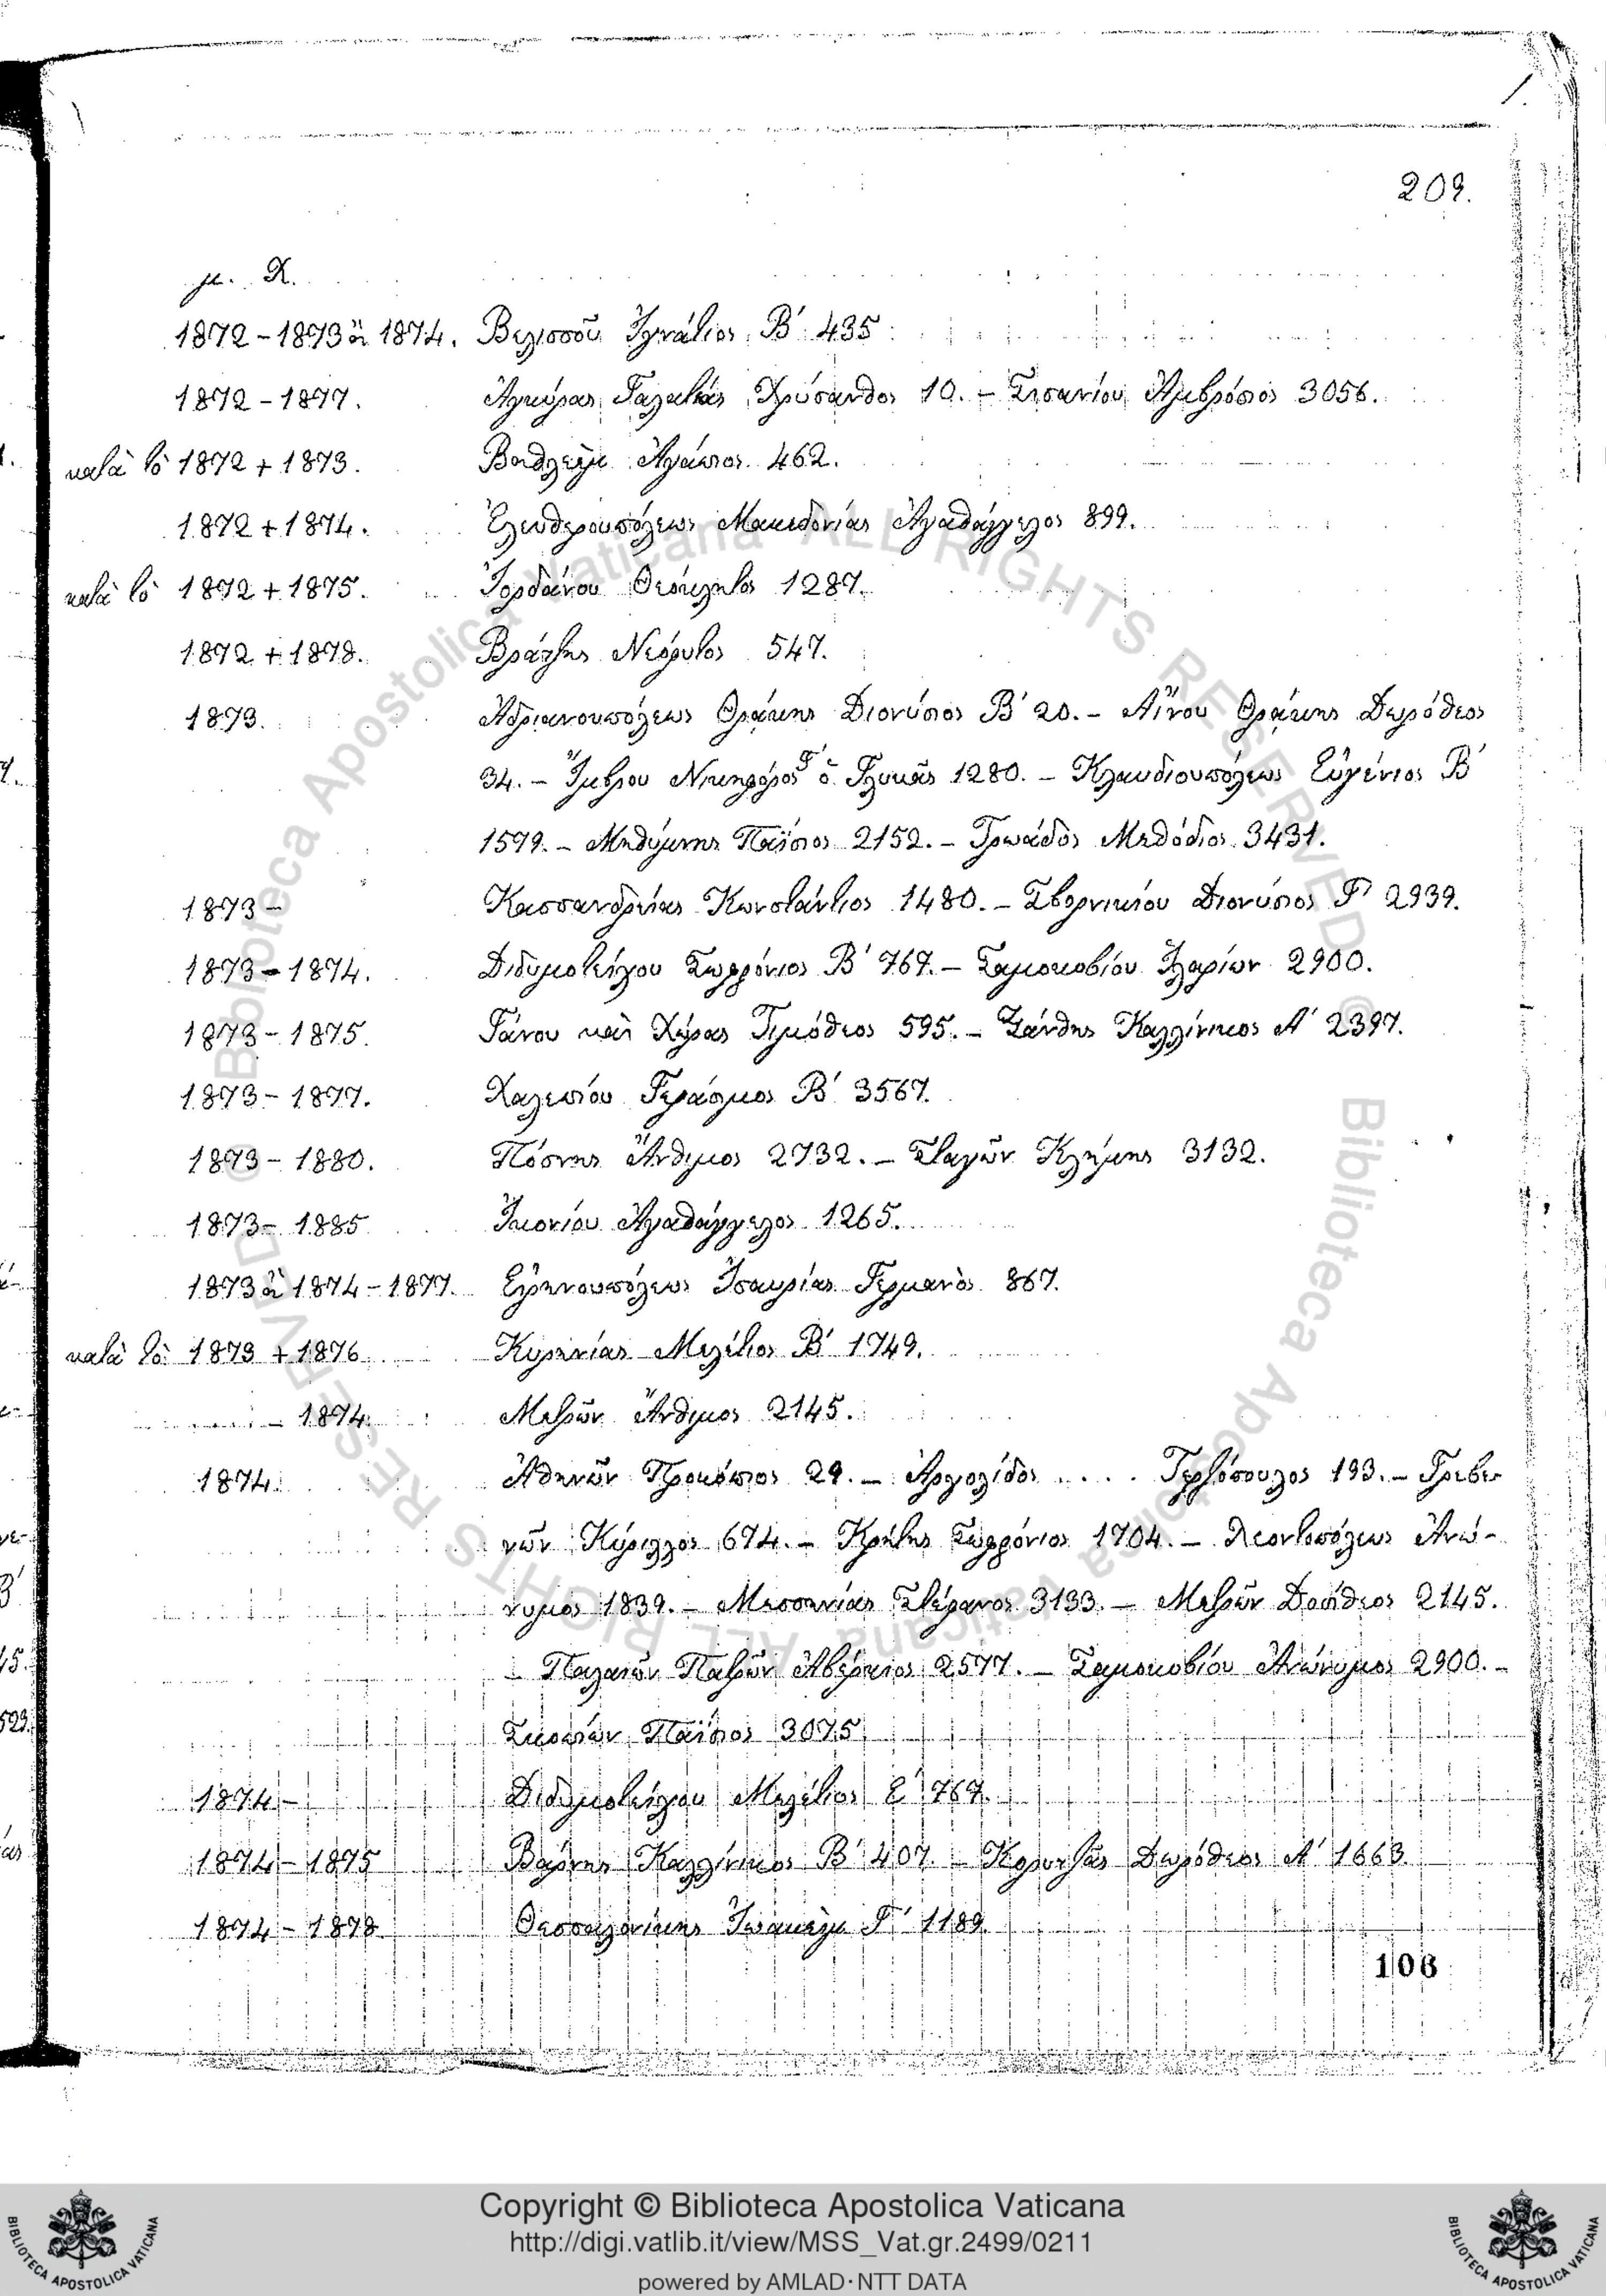 209.
μ. Χ.
1872 - 1873 ἢ 1874. Βελισσοῦ Ἰγνάτιος Β΄ 435
1872 - 1877. Ἀγκύρας Γαλατίας Χρύσανθος 10. - Σισανίου Ἀμβρόσιος 3056.
κατὰ τὸ 1872 + 1873. Βηθλεὲμ Ἀγάπιος 462.
1872 + 1874. Ἐλευθερουπόλεως Μακεδονίας Ἀγαθάγγελος 899.
κατὰ τὸ 1872 + 1875. Ἰορδάνου Θεόκλητος 1287.
1872 + 1878. Βράτζης Νεόφυτος 547.
1873. Ἀδριανουπόλεως Θρᾴκης Διονύσιος Β΄ 20. - Αἴνου Θρᾴκης Δωρόθεος
34. - Ἴμβρου Νικηφόρος Γ΄ ὁ Γλυκᾶς 1280. - Κλαυδιουπόλεως Εὐγένιος Β΄
1579. - Μηθύμνης Παΐσιος 2152. - Τρωάδος Μεθόδιος 3431.
1873 - Κασσανδρείας Κωνστάντιος 1480. - Σβορνικίου Διονύσιος Γ΄ 2939.
1873 - 1874. Διδυμοτείχου Σωφρόνιος Β΄ 767. - Σαμοκοβίου Ἱλαρίων 2900.
1873 - 1875. Γάνου καὶ Χώρας Τιμόθεος 595. - Ξάνθης Καλλίνικος Α΄ 2397.
1873 - 1877. Χαλεπίου Γεράσιμος Β΄ 3567.
1873 - 1880. Πόσνης Ἄνθιμος 2732. - Σταγῶν Κλήμης 3132.
1873 - 1885 Ἰκονίου Ἀγαθάγγελος 1265.
1873 ἢ 1874 - 1877. Εἰρηνουπόλεως Ἰσαυρίας Γερμανὸς 867.
κατὰ τὸ 1873 + 1876 Κυρηνίας Μελέτιος Β΄ 1749.
- 1874. Μετρῶν Ἄνθιμος 2145.
1874. Ἀθηνῶν Προκόπιος 29. - Ἀργολίδος .... Τερζόπουλος 193. - Γρεβε-
νῶν Κύριλλος 674. - Κρήτης Σωφρόνιος 1704. - Λεοντοπόλεως Ἀνώ-
νυμος 1839. - Μεσσηνίας Στέφανος 3133. - Μετρῶν Δοσίθεος 2145.
- Παλαιῶν Πατρῶν Ἀβέρκιος 2577. - Σαμοκοβίου Ἀνώνυμος 2900. -
Σκοπίων Παΐσιος 3075
1874 - Διδυμοτείχου Μελέτιος Ε΄ 767.
1874 - 1875 Βάρνης Καλλίνικος Β΄ 407. - Κορυτζᾶς Δωρόθεος Α΄ 1663.
1874 - 1878 Θεσσαλονίκης Ἰωακεὶμ Γ΄ 1189
106
Copyright © Biblioteca Apostolica Vaticana
http://digi.vatlib.it/view/MSS_Vat.gr.2499/0211
powered by AMLAD·NTT DATA